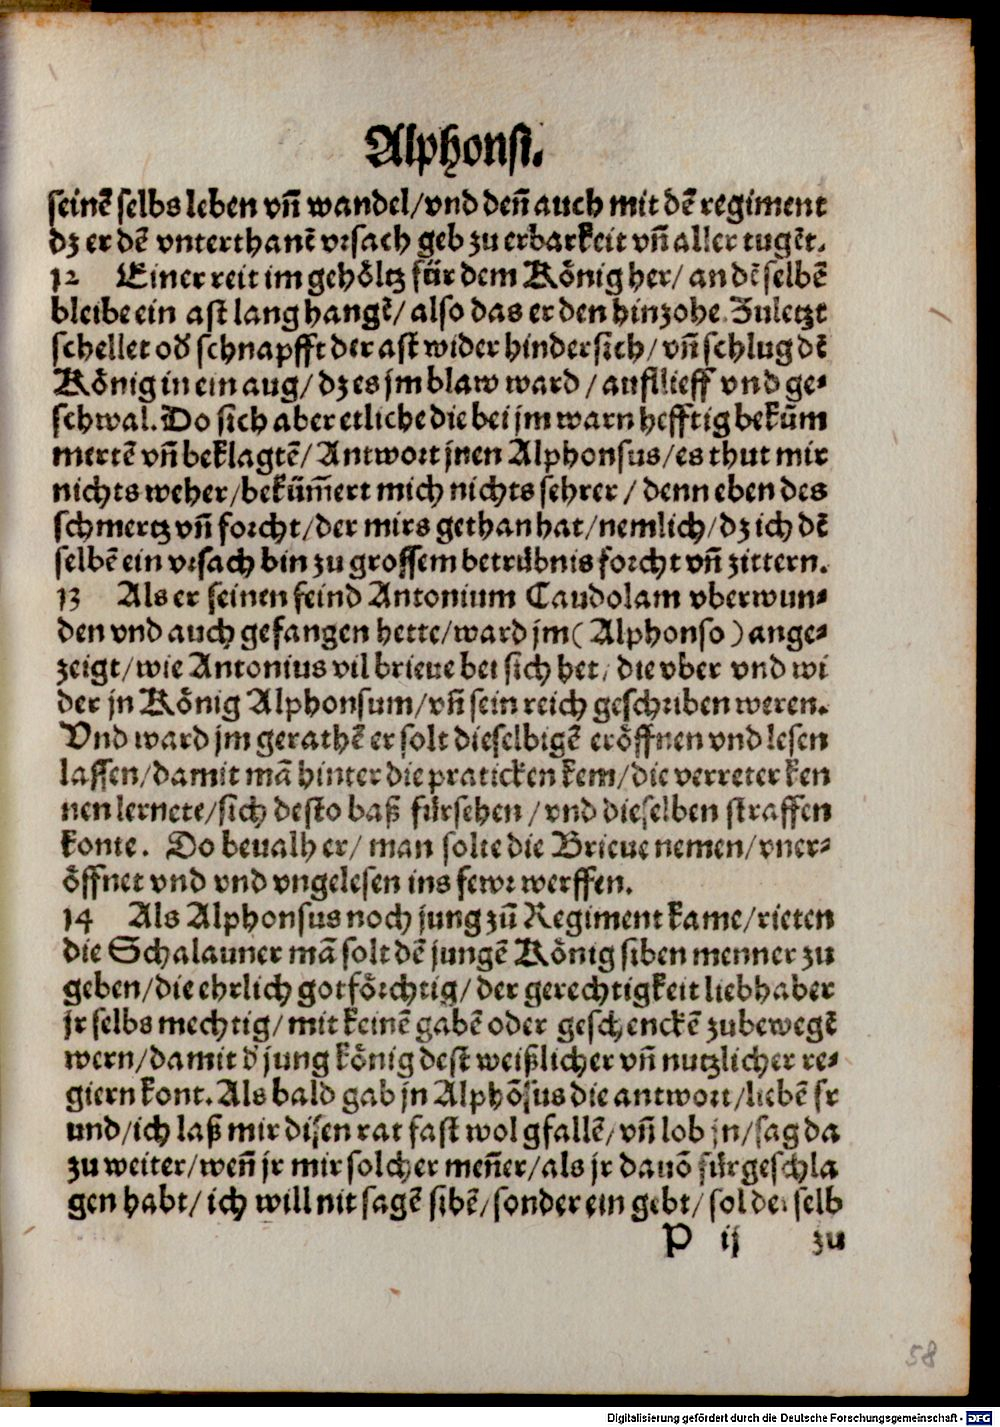 Alphonsi.
seinē selbs leben vñ wandel/vnd deñ auch mit dē regiment
dz er dē vnterthanē vrsach geb zu erbarkeit vñ aller tugēt.
12 Einer reit im gehöltz für dem König her/ an dē selbē
bleibe ein ast lang hangē/ also das er den hinzohe. Zuletzt
schellet oď schnapfft der ast wider hindersich/ vñ schlug dē
König in ein aug/ dz es jm blaw ward / aufllieff vnd ge⸗
schwal. Do sich aber etliche die bei jm warn hefftig bekūm
mertē vñ beklagtē/ Antwort jnen Alphonsus/es thut mir
nichts weher/bekūm̄ert mich nichts sehrer / denn eben des
schmertz vñ forcht/der mirs gethan hat/nemlich/dz ich dē
selbē ein vrsach bin zu grossem betrübnis forcht vñ zittern.
13 Als er seinen feind Antonium Caudolam vberwun⸗
den vnd auch gefangen hette/ward jm ( Alphonso ) ange⸗
zeigt/wie Antonius vil brieue bei sich het/ die vber vnd wi
der jn König Alphonsum/vñ sein reich geschriben weren.
Vnd ward jm gerathē er solt dieselbigē eröffnen vnd lesen
lassen/damit mā hinter die praticken kem/die verreter ken
nen lernete/sich desto baß fürsehen / vnd dieselben straffen
konte. Do beualh er/ man solte die Brieue nemen/vner⸗
öffnet vnd vnd vngelesen ins fewr werffen.
14 Als Alphonsus noch jung zū Regiment kame/rieten
die Schalauner mā solt dē jungē König siben menner zu
geben/die ehrlich gotförchtig/ der gerechtigkeit liebhaber
jr selbs mechtig/ mit keinē gabē oder geschenckē zubewegē
wern/damit ď jung könig dest weißlicher vñ nutzlicher re⸗
giern kont. Als bald gab jn Alphōsus die antwort/liebē fr
und/ich laß mir disen rat fast wol gfallē/vñ lob jn/sag da
zu weiter/weñ jr mir solcher meñer/als jr dauō fürgeschla
gen habt/ ich will nit sagē sibē/sonder ein gebt/ sol der selb
P ij zu
58
Digitalisierung gefördert durch die Deutsche Forschungsgemeinschaft - DFG